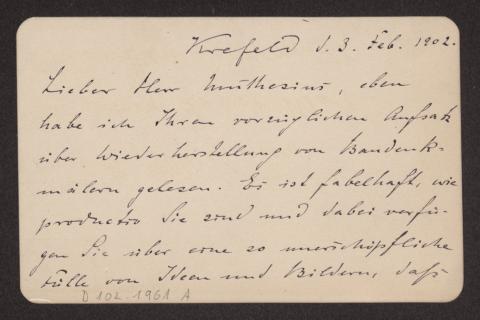 Krefeld d. 3. Feb. 1902.
Lieber Herr Muthesius, eben
habe ich Ihren vorzüglichen Aufsatz
über Wiederherstellung von Baudenk-
mälern gelesen. Es ist fabelhaft, wie
productiv Sie sind und dabei verfü-
gen Sie über eine so unerschöpfliche
Fülle von Ideen und Bildern, daß
D 102-1961 A